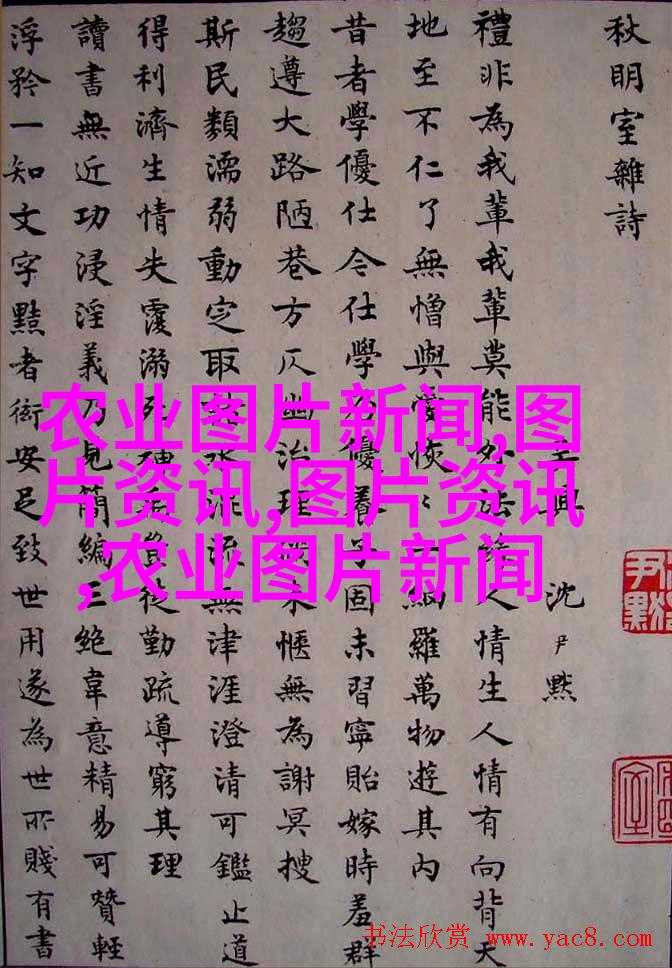 秋明室雜詩
興 沈尹默
禮非為我輩我輩莫能外法人情生人情有向背天
地至不仁了無憎與愛恢〻一網羅萬物遊其內
昔者學優仕今仕學不優養子固未習寧貽嫁時羞群
趨遵大路陋巷方仄幽治理未愜無為謝冥搜
斯民類濡弱動定取水流無津涯澄清可鑑止道
得利濟生情失覆溺死負從勤疏導窮其理
讀書無近功浸淫義乃見簡編三絕韋意精易可贊輕
浮矜一知文字黠者衒安足致世用遂為世所賤有書
农业图片新闻,图
片资讯,图片资讯
,农业图片新闻
尹默
书法欣赏 www.yac8.com